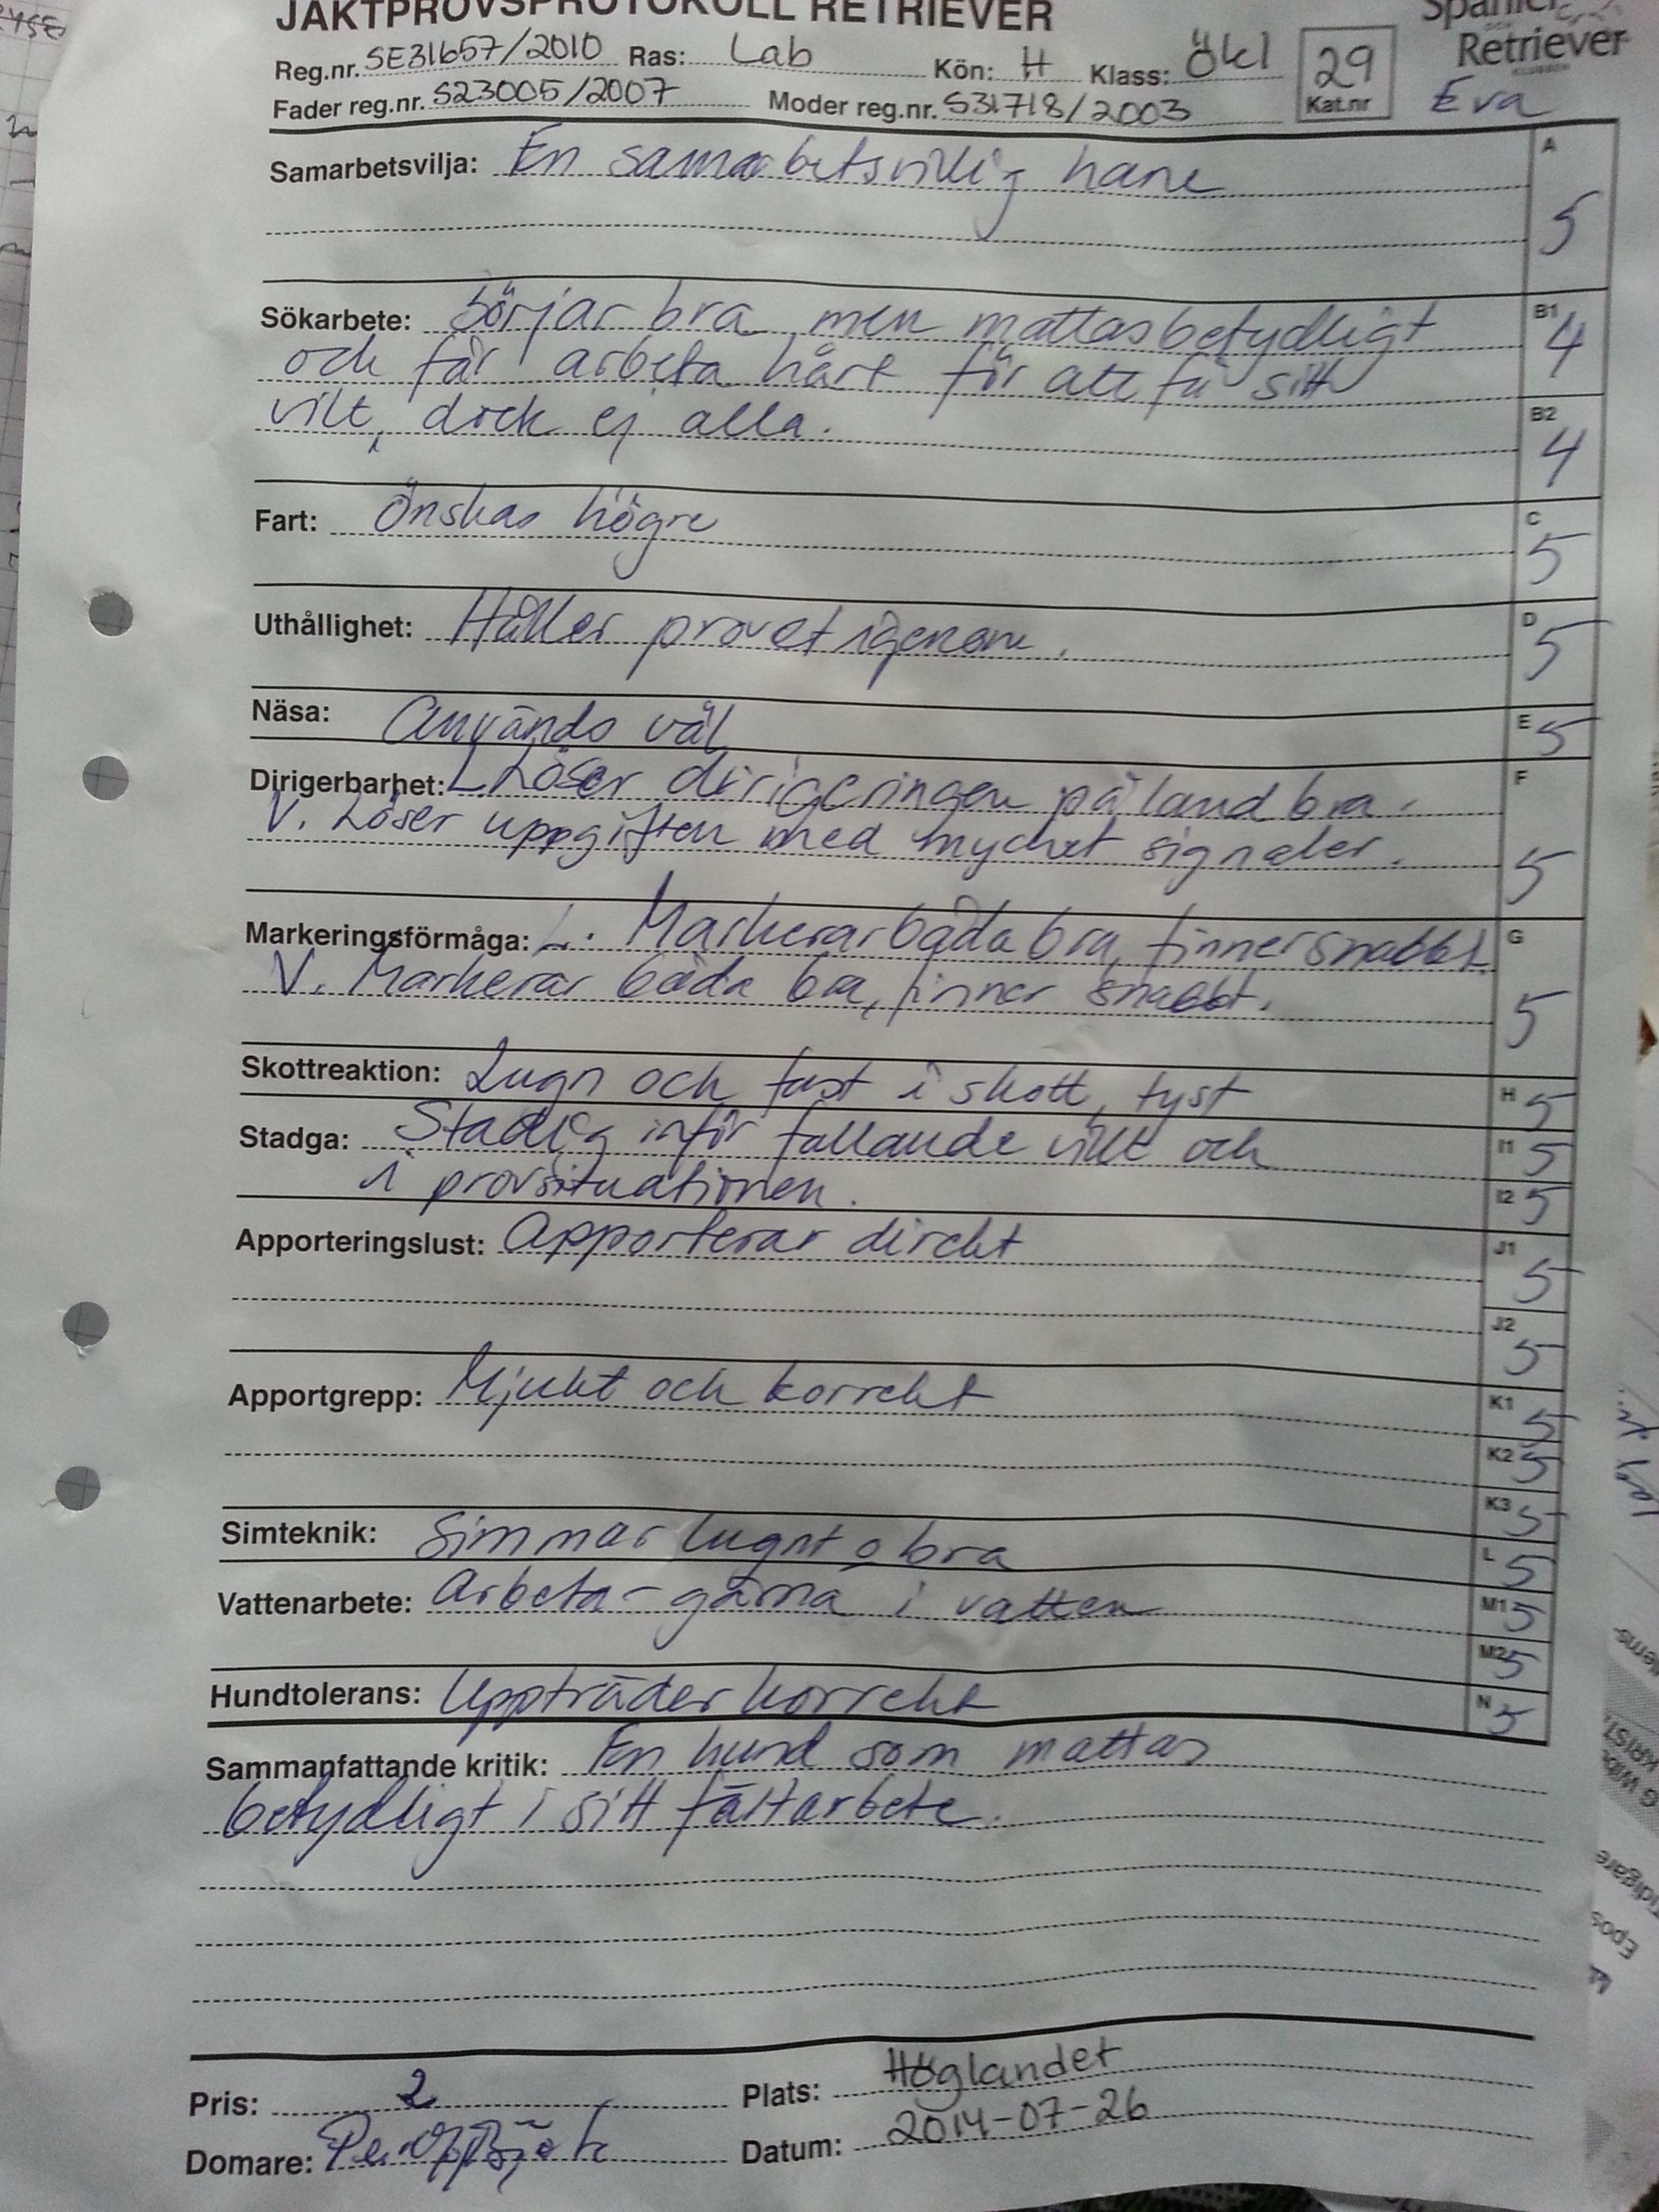 JAKTPROVSPROTOKOLL RETRIEVER
Spaniel
Retriever
Reg.nr. SE31657/2010 Ras: Lab Kön: H Klass: Ökl 29
Fader reg.nr. S23005/2007 Moder reg.nr. S31718/2003 Kat.nr Eva
Samarbetsvilja: En samarbetsvillig hane A
5
Sökarbete: börjar bra men mattas betydligt B1 4
och får arbeta hårt för att få sitt
vilt, dock ej alla. B2 4
Fart: Önskas högre C 5
Uthållighet: Håller provet igenom. D 5
Näsa: Används väl E 5
Dirigerbarhet: L Löser dirigeringen på land bra. F
V. Löser uppgiften med mycket signaler. 5
Markeringsförmåga: L. Markerar båda bra, finner snabbt. G
V. Markerar båda bra, finner snabbt. 5
Skottreaktion: Lugn och fast i skott, tyst H 5
Stadga: Stadig inför fallande vilt och I1 5
i provsituationen. I2 5
Apporteringslust: Apporterar direkt J1 5
J2 5
Apportgrepp: Mjukt och korrekt K1 5
K2 5
K3 5
Simteknik: Simmar lugnt o bra L 5
Vattenarbete: Arbeta- gärna i vatten M1 5
M2 5
Hundtolerans: Uppträder korrekt N 5
Sammanfattande kritik: En hund som mattas
betydligt i sitt fältarbete.
Pris: 2 Plats: Höglandet
Domare: Datum: 2014-07-26